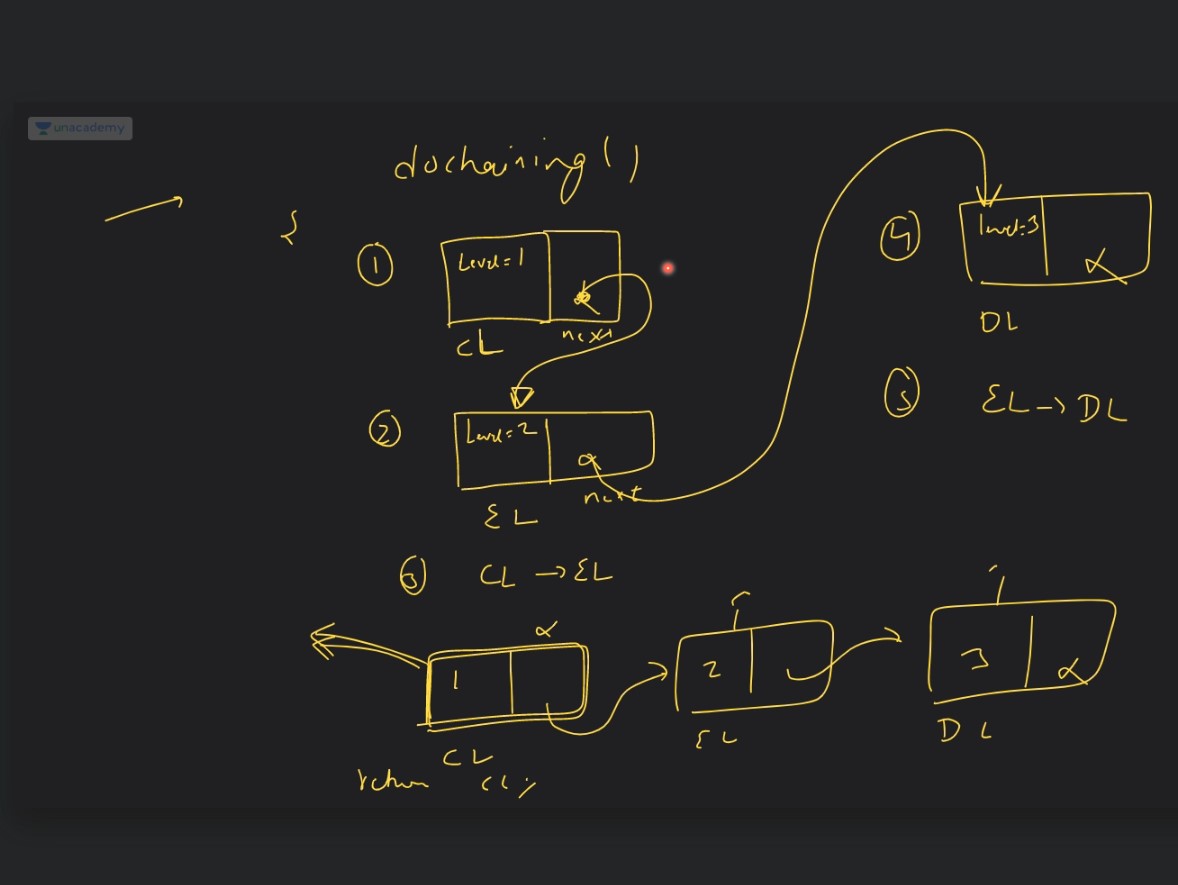 unacademy
dochaining()
{
① Level=1
CL next
② Level=2
EL next
③ CL → EL
④ Level=3
DL
⑤ EL → DL
1
CL
2
EL
3
DL
return CL;